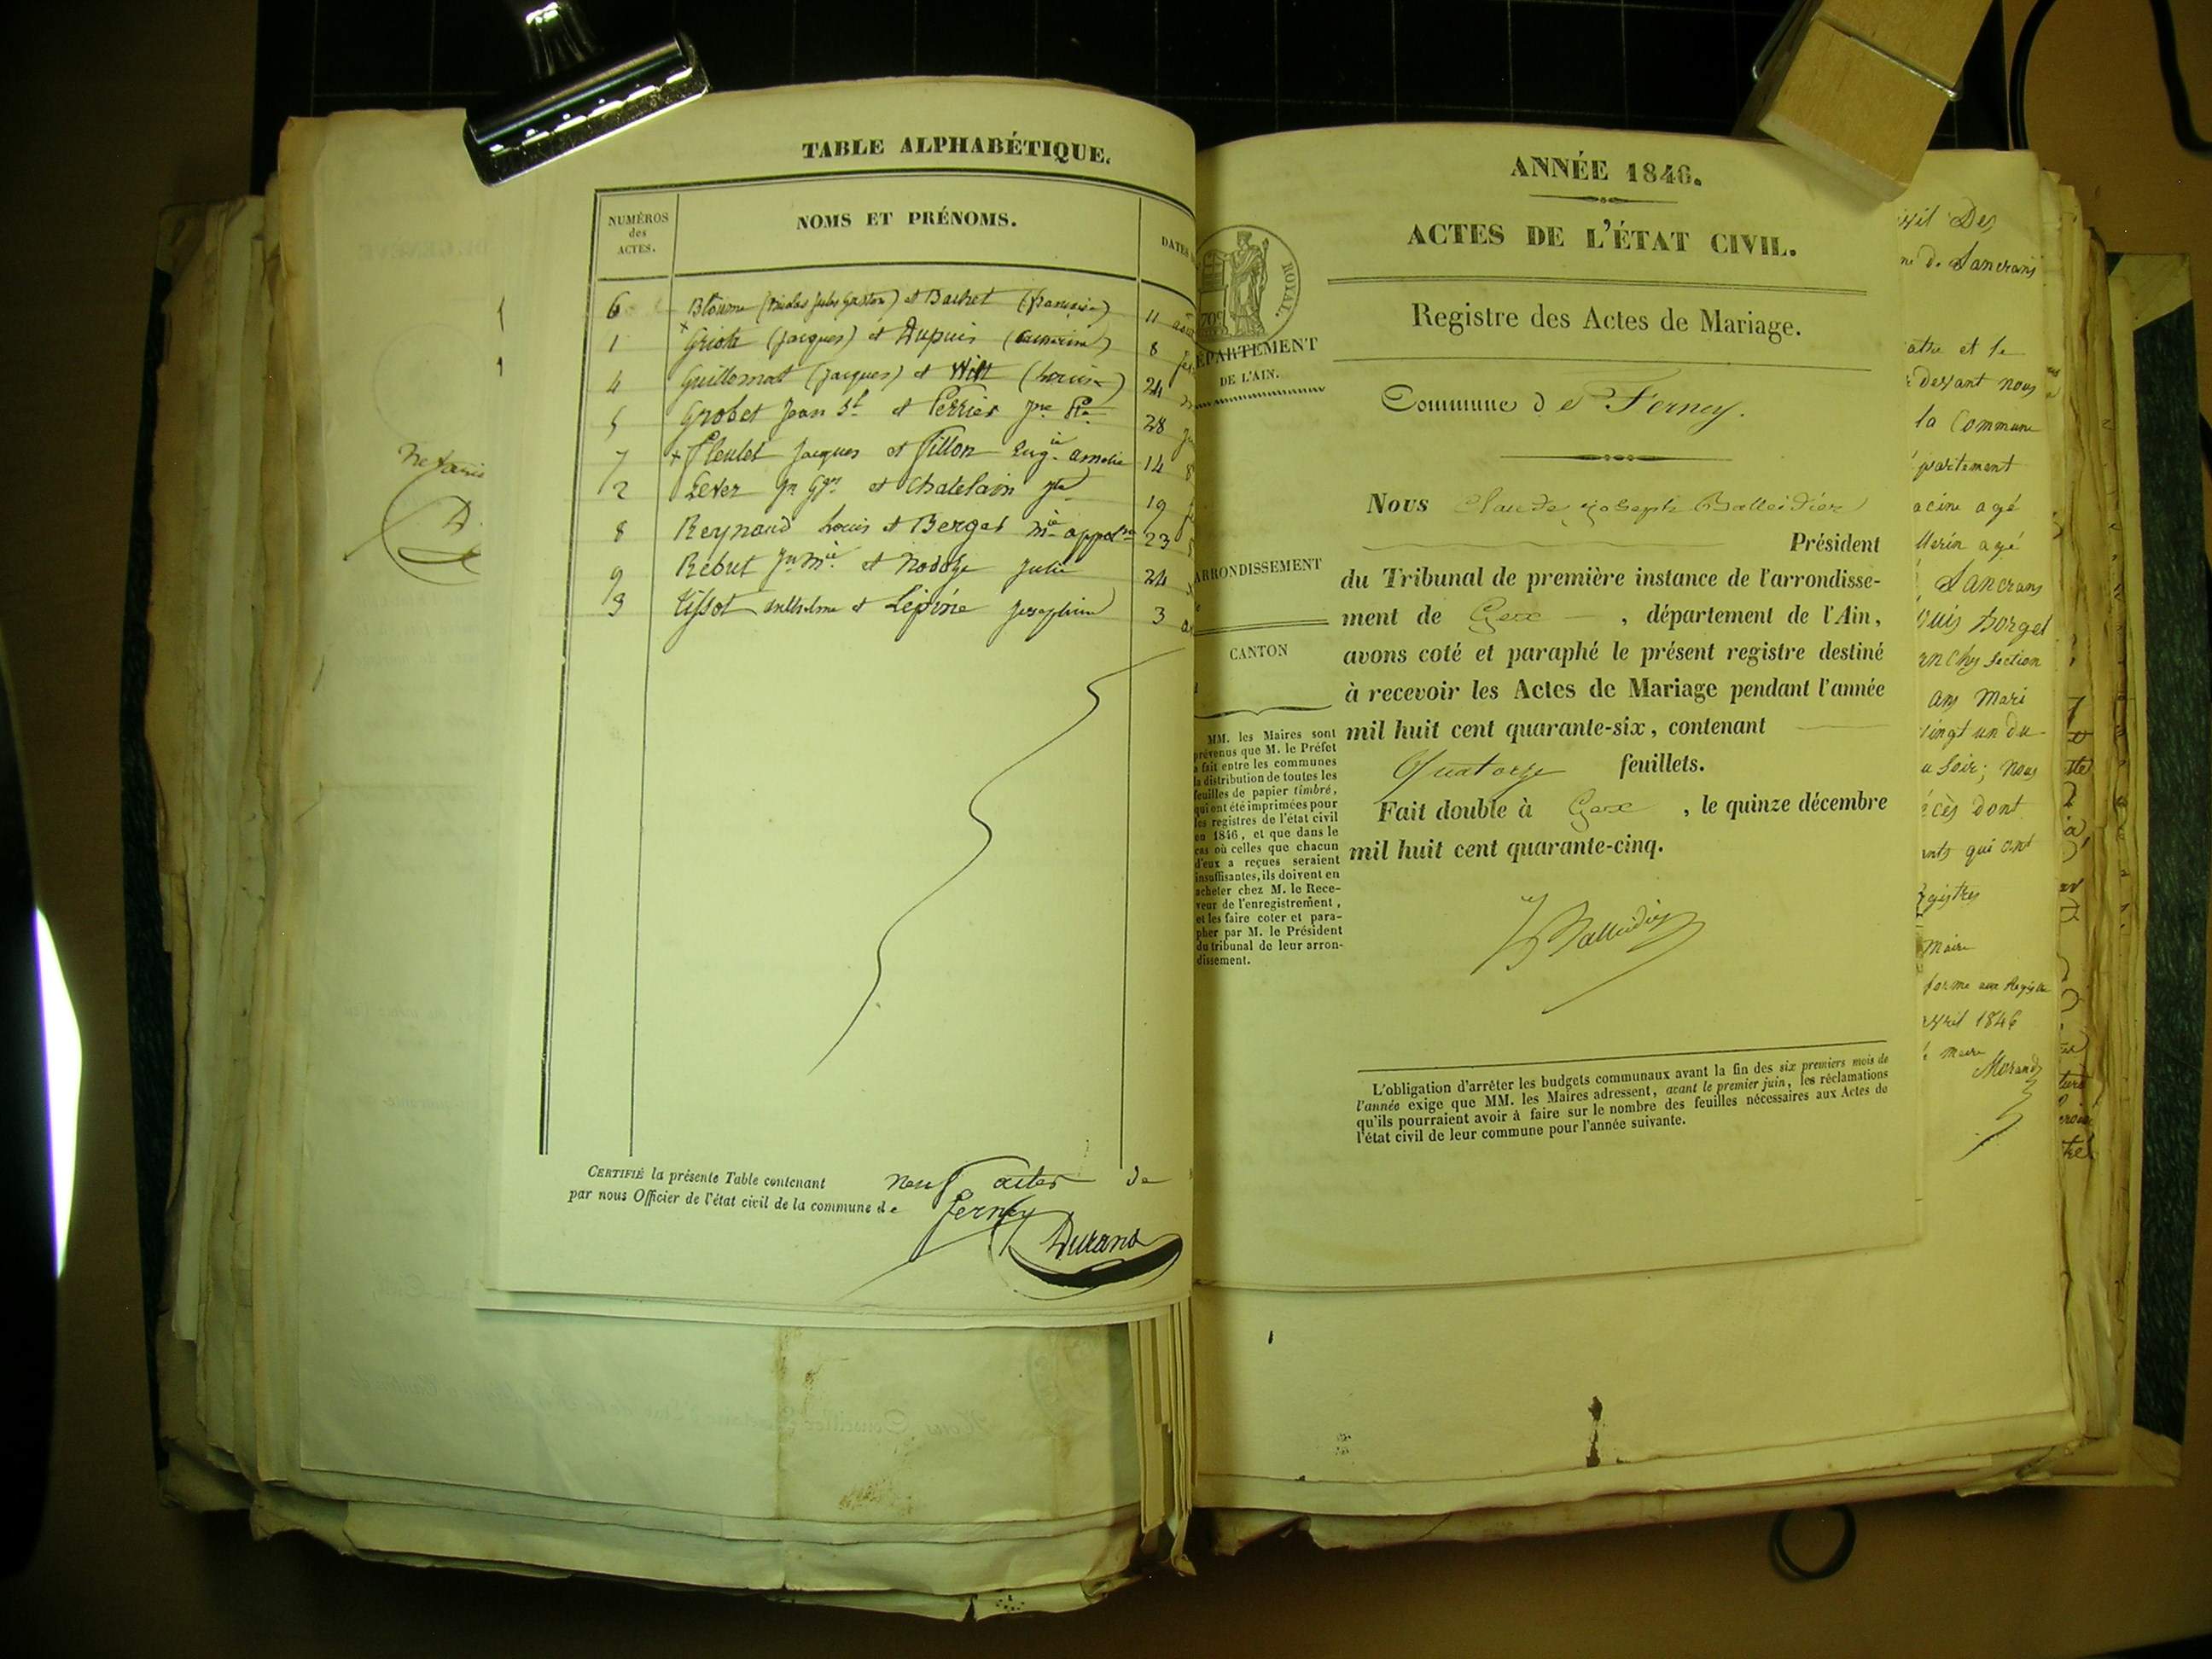 TABLE ALPHABÉTIQUE.
NUMÉROS
des
ACTES.
NOMS ET PRÉNOMS.
DATES
6 (Nicolas Jules Gaston) et Bachet (françoise) 11
1 (Jacques) et Dupuis 8
4 Guillomat (Jacques) et Witt (Louise) 24
5 Grobet Jean et Perrier 28
7 Jacques et Fillon Eug. amelie 14
2 et Chatelain 19
8 Reynaud Louis et Berger 23
9 Rebut et Julie 24
3 Tissot et Lépine Josephine 3
CERTIFIÉ la présente Table contenant neuf actes de
par nous Officier de l'état civil de la commune de Ferney
Durand
ANNÉE 1846.
ACTES DE L'ÉTAT CIVIL.
Registre des Actes de Mariage.
ROYAL.
70c
DÉPARTEMENT
DE L'AIN.
Commune de Ferney.
Nous Claude Joseph Balleidier
Président
ARRONDISSEMENT
du Tribunal de première instance de l'arrondisse-
ment de Gex , département de l'Ain,
CANTON
avons coté et paraphé le présent registre destiné
à recevoir les Actes de Mariage pendant l'année
mil huit cent quarante-six, contenant
Quatorze feuillets.
Fait double à Gex , le quinze décembre
mil huit cent quarante-cinq.
MM. les Maires sont
prévenus que M. le Préfet
a fait entre les communes
la distribution de toutes les
feuilles de papier timbré,
qui ont été imprimées pour
les registres de l'état civil
en 1846, et que dans le
cas où celles que chacun
d'eux a reçues seraient
insuffisantes, ils doivent en
acheter chez M. le Rece-
veur de l'enregistrement,
et les faire coter et para-
pher par M. le Président
du tribunal de leur arron-
dissement.
Balleidier
L'obligation d'arrêter les budgets communaux avant la fin des six premiers mois de
l'année exige que MM. les Maires adressent, avant le premier juin, les réclamations
qu'ils pourraient avoir à faire sur le nombre des feuilles nécessaires aux Actes de
l'état civil de leur commune pour l'année suivante.
Des
de Lancrans
et le
devant nous
la Commune
agé
agé
Lancrans
Borget
Section
ans Mari
un du
Soir; nous
dont
qui ont
Maire
aux
1846
Morand